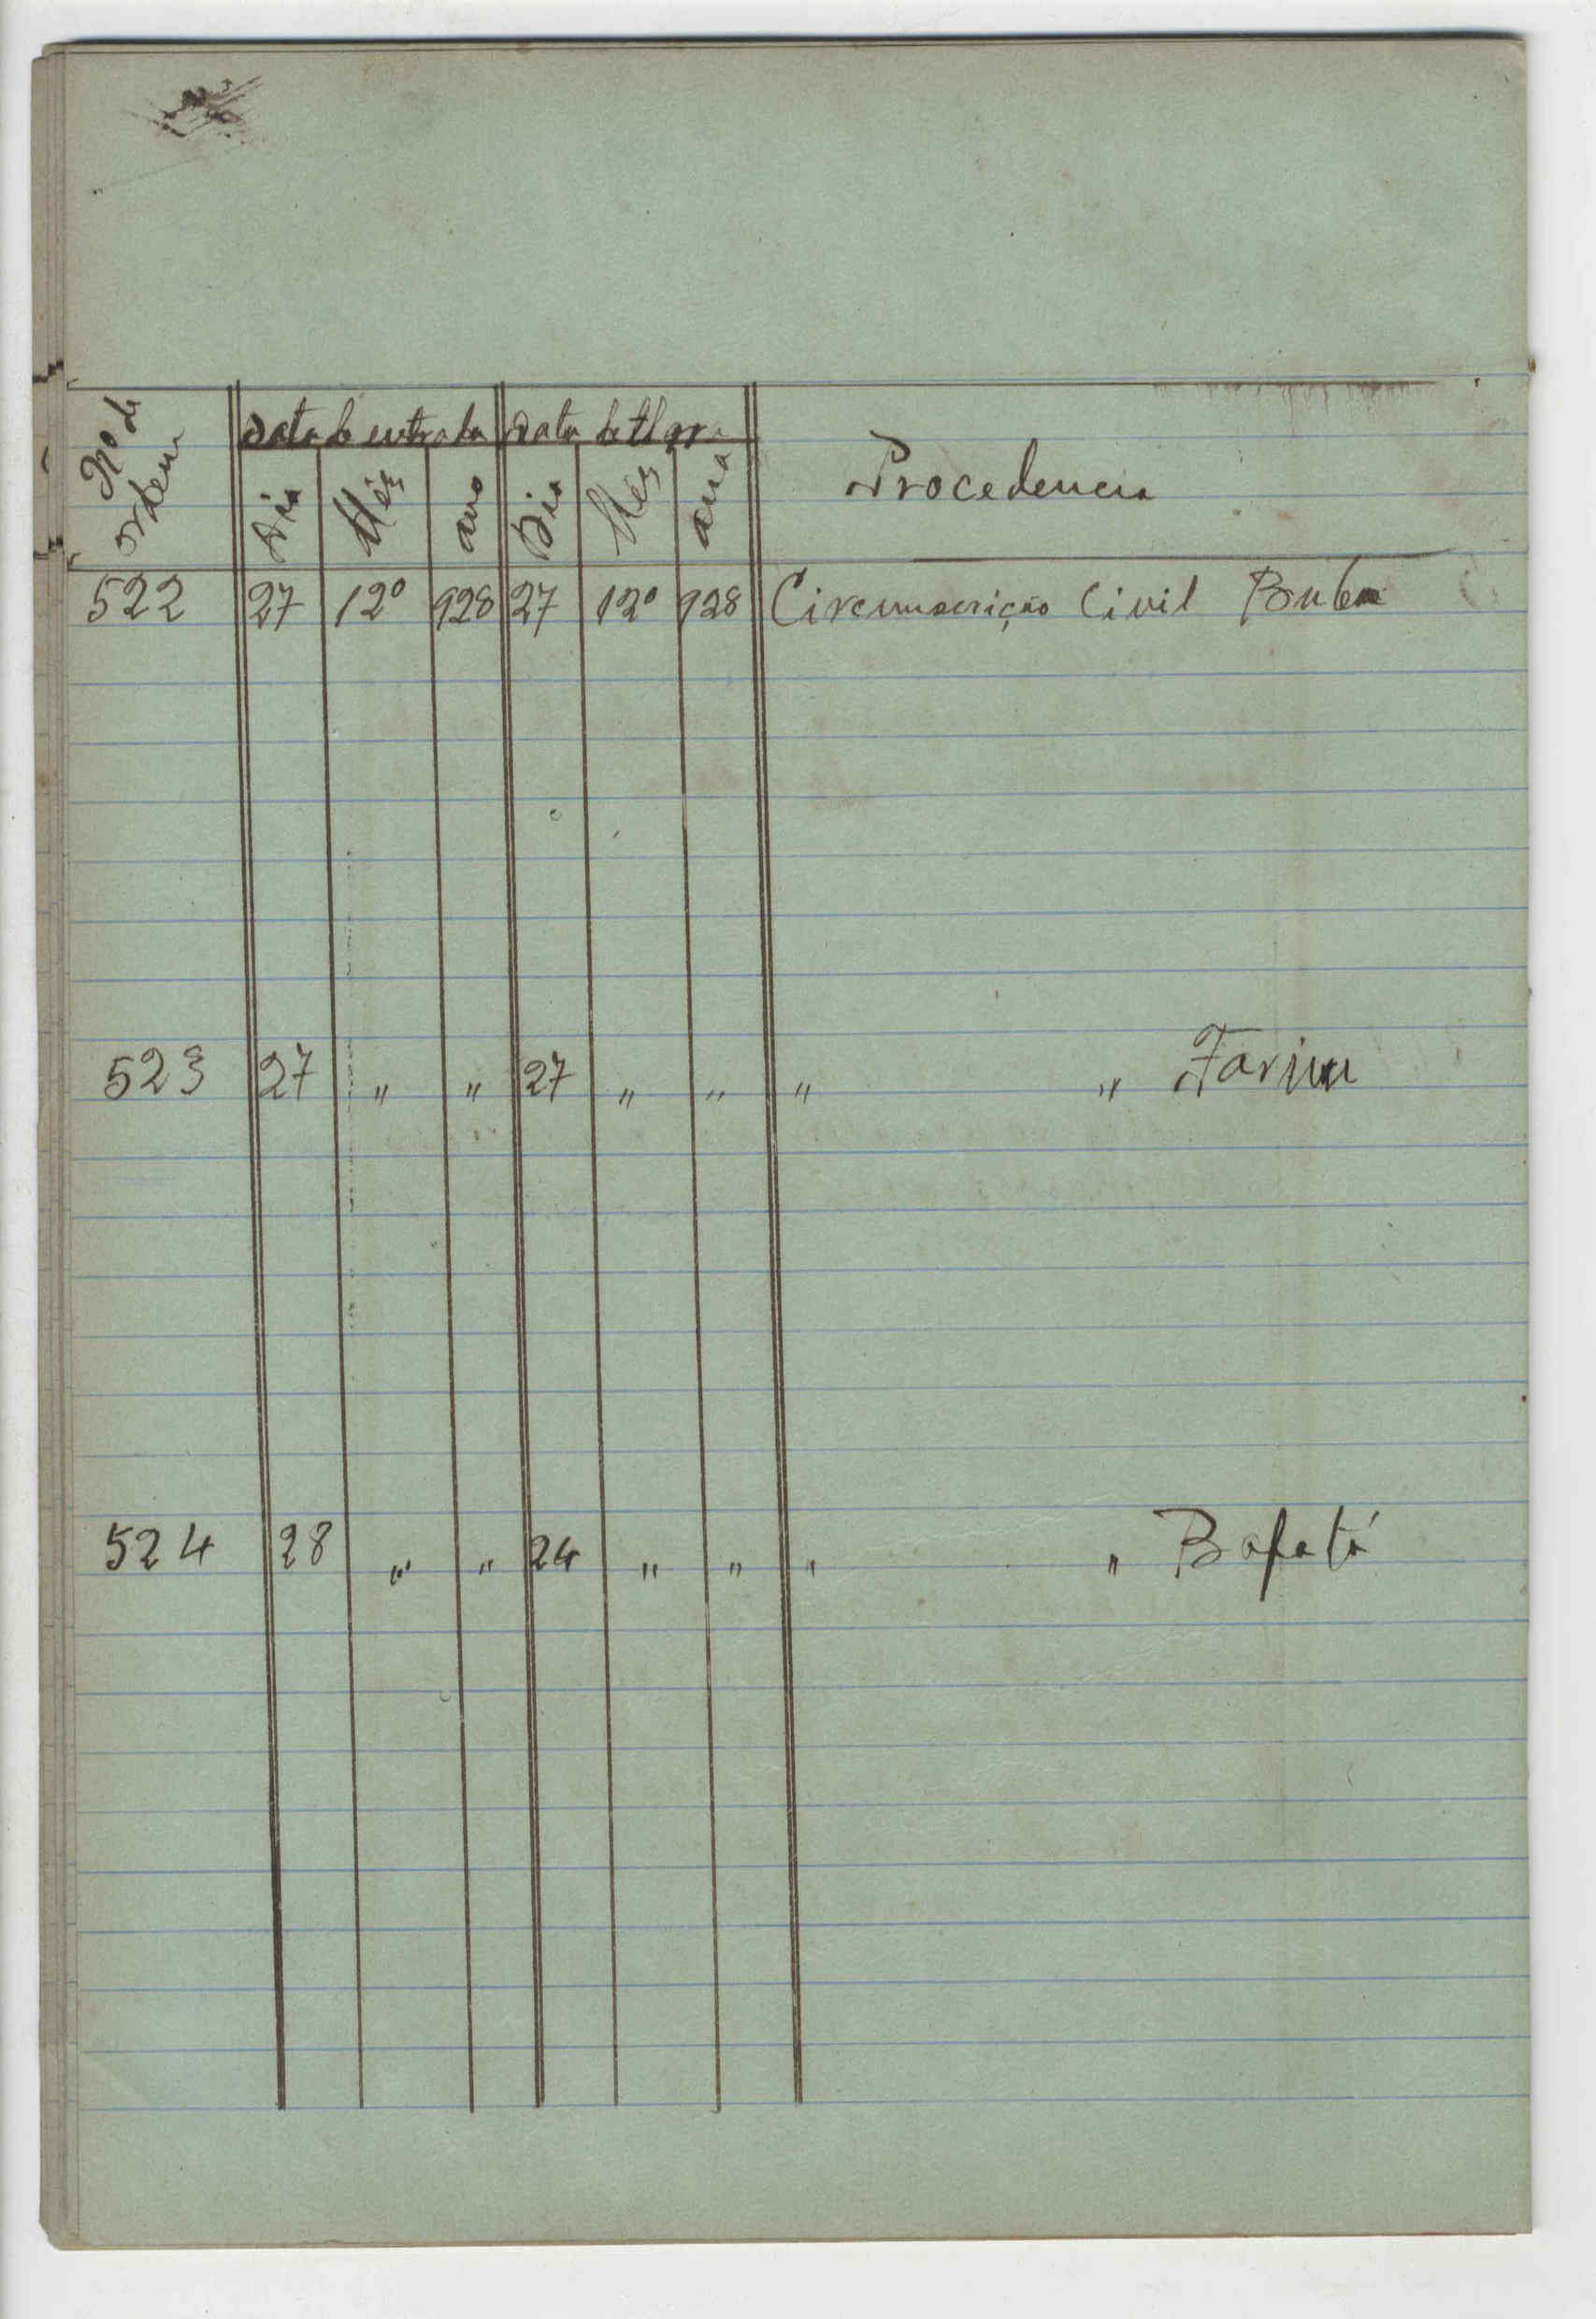 Nº de ordem
Data de entrada Data
Dia Mês ano Dia Mês ano
Procedencia
522 27 12º 928 27 12º 928 Circumscrição Civil Buba
523 27 " " 27 " " " " Farim
524 28 " " 24 " " " " Bafatá